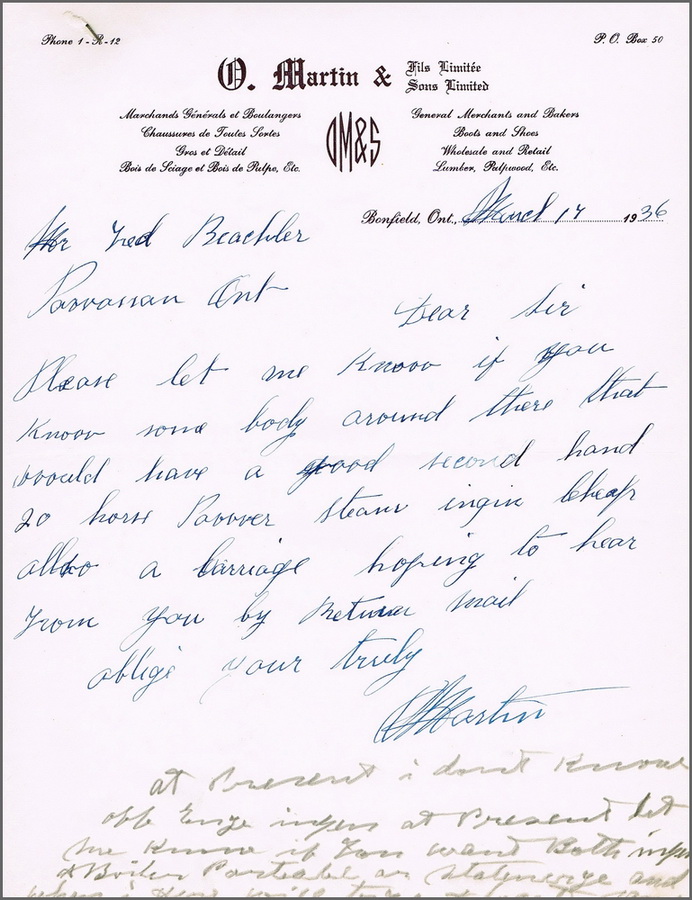 Phone 1-R-12
P.O. Box 50
O. Martin & Fils Limitée
Sons Limited
Marchands Générals et Boulangers
Chaussures de Toutes Sortes
Gros et Détail
Bois de Sciage et Bois de Pulpe, Etc.
OM&S
General Merchants and Bakers
Boots and Shoes
Wholesale and Retail
Lumber, Pulpwood, Etc.
Bonfield, Ont., March 17 1936
Mr Fred Beachler
Powassan Ont
Dear Sir
Please let me Know if you
Know some body around there that
would have a good second hand
20 horse Power steam ingin Cheap
allso a Carriage hoping to hear
From you by Return mail
oblige your truly
O Martin
at Present i dont Know
off at Present let
me Know if You want Both
& Boiler and